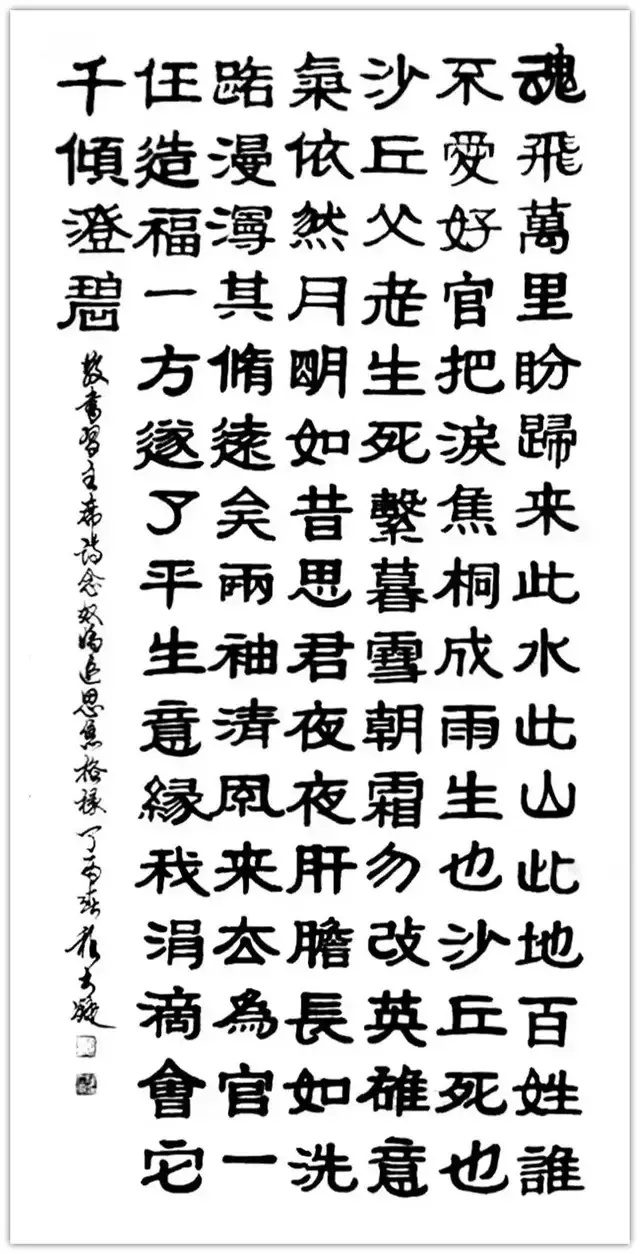 魂飛萬里盼歸来此水此山此地百姓誰
不愛好官把淚焦桐成雨生也沙丘死也
沙丘父老生死繫暮雪朝霜勿改英雄意
氣依然月明如昔思君夜夜肝膽長如洗
路漫漫其脩遠矣兩袖清風来去為官一
任造福一方遂了平生意緣我涓滴會它
千傾澄碧
敬書習主席詩念奴嬌追思焦裕祿丁酉春